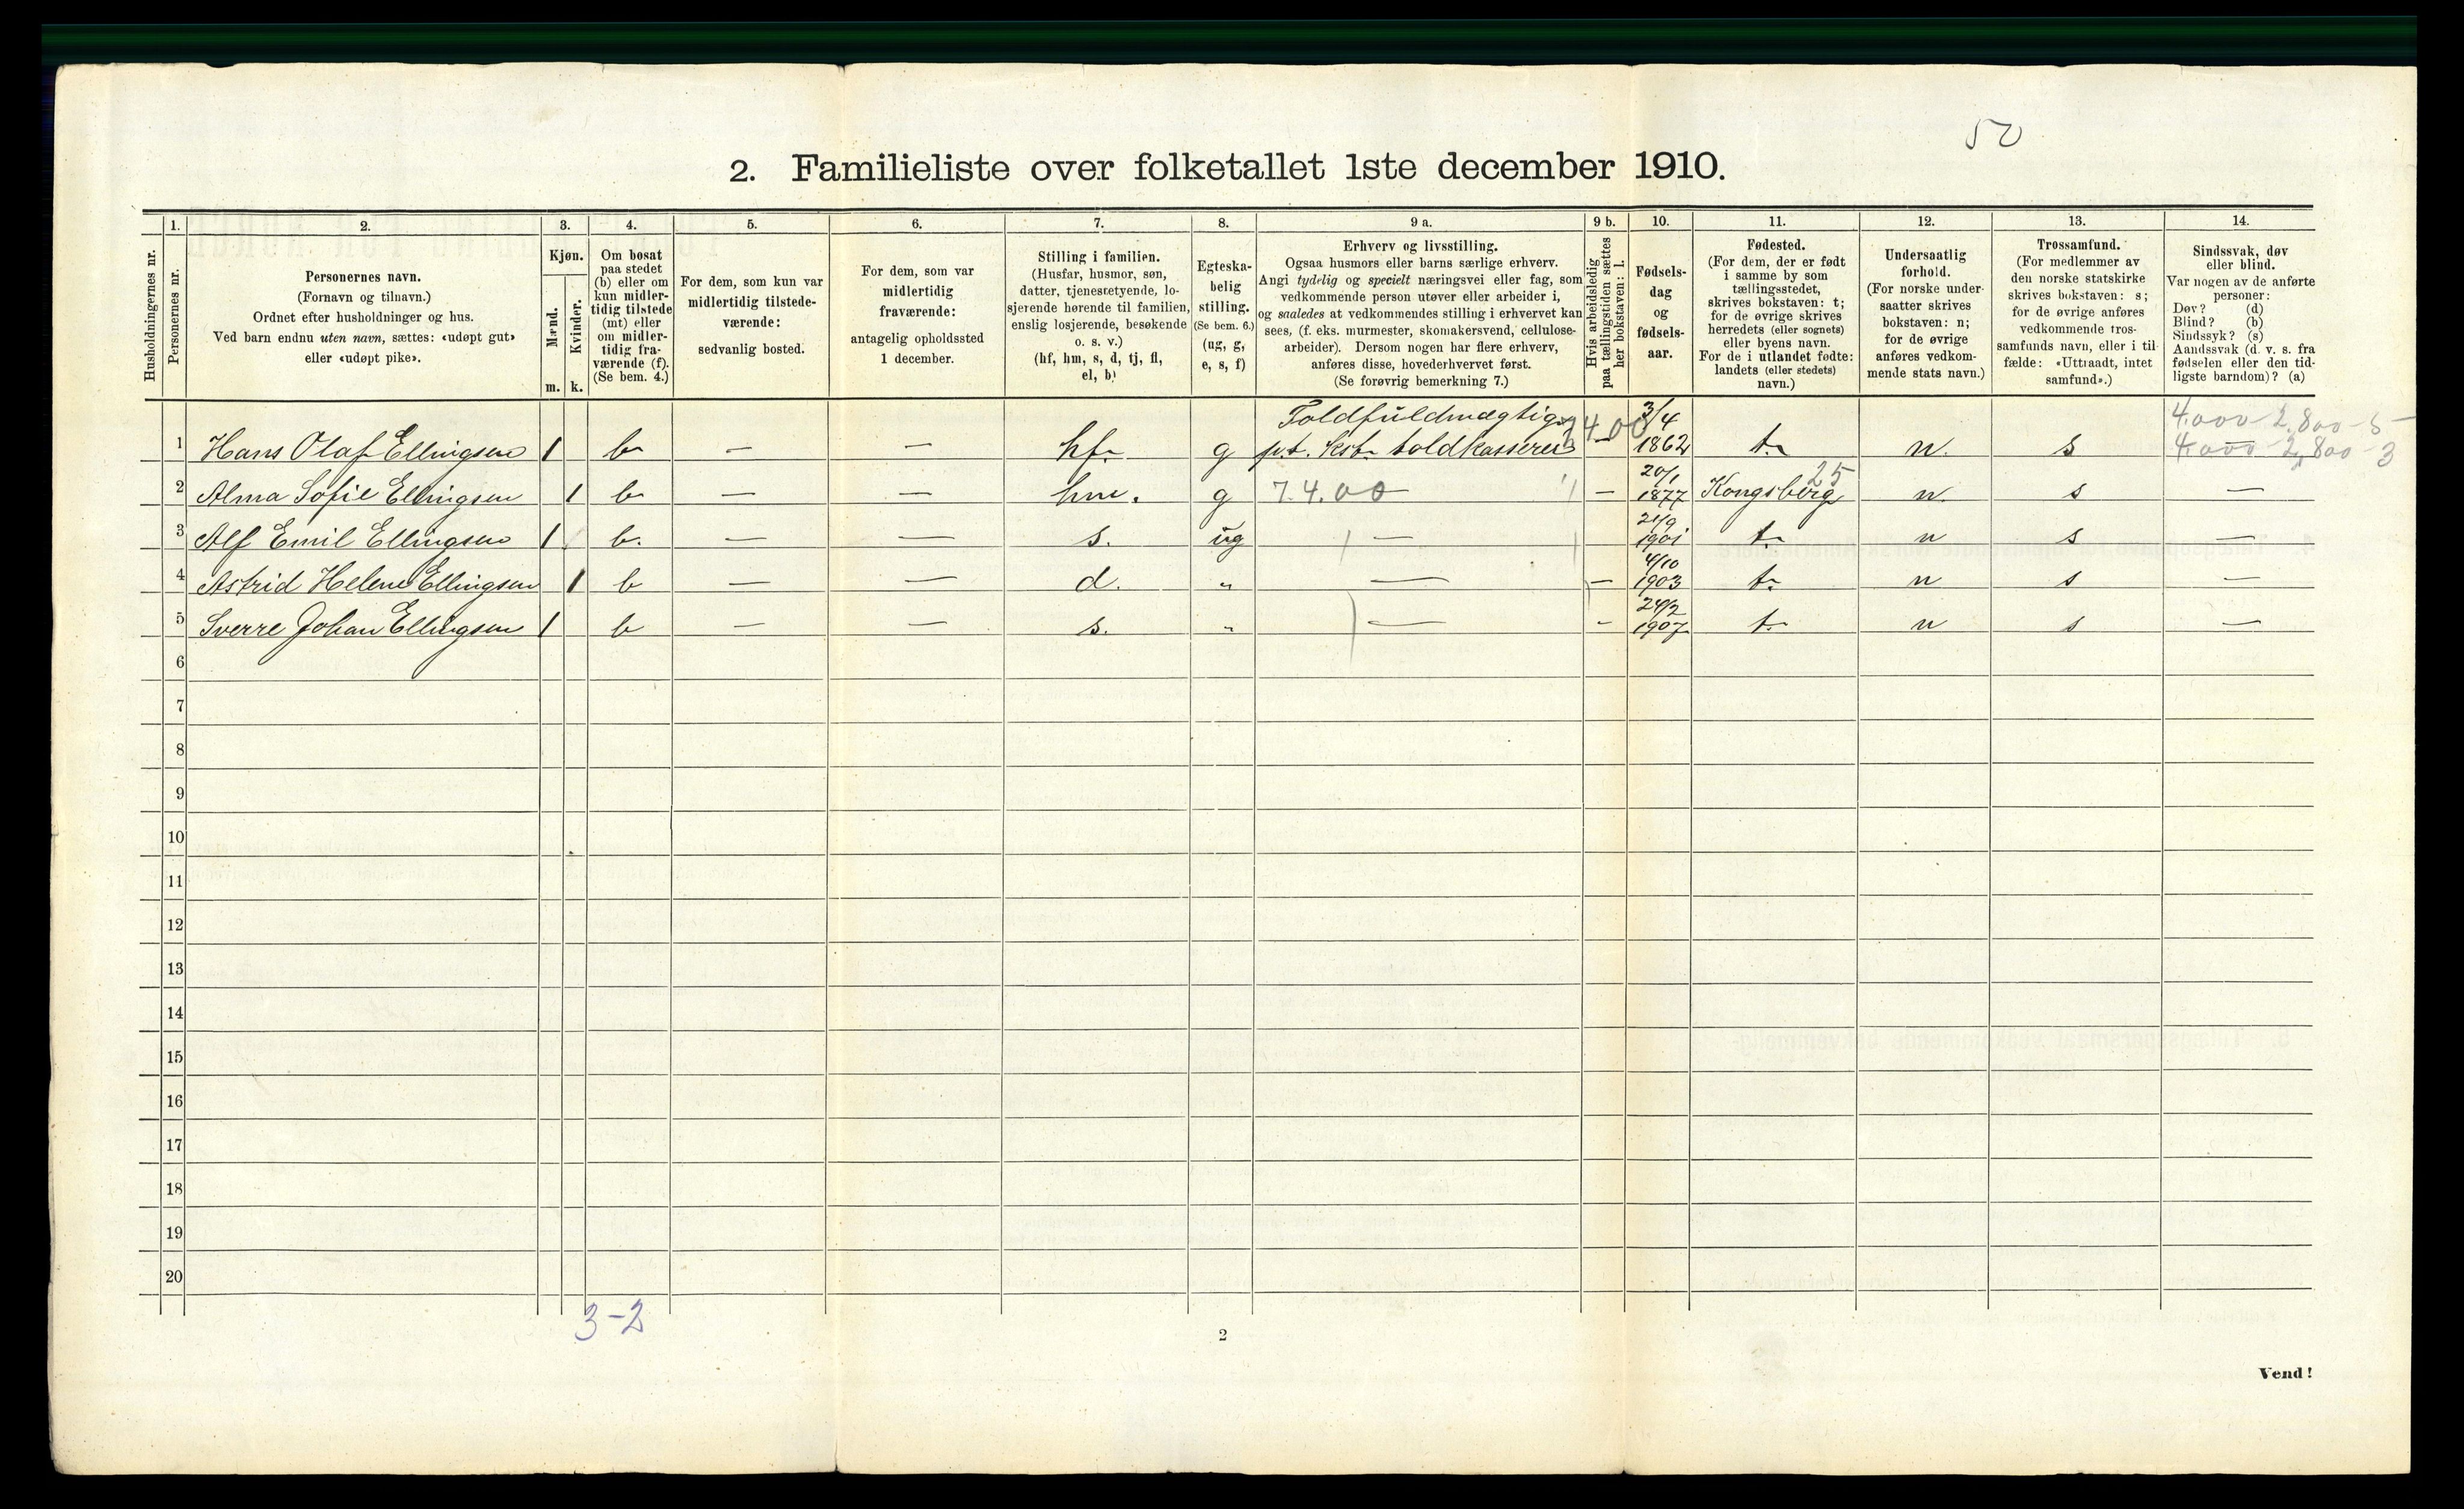 50
2. Familieliste over folketallet 1ste december 1910.
Husholdningernes nr.
1.
Personernes nr.
2.
Personernes navn.
(Fornavn og tilnavn.)
Ordnet efter husholdninger og hus.
Ved barn endnu uten navn, sættes: «udøpt gut»
eller «udøpt pike».
3.
Kjøn.
Mænd.
Kvinder.
m. k.
4.
Om bosat
paa stedet
(b) eller om
kun midler-
tidig tilstede
(mt) eller
om midler-
tidig fra-
værende (f).
(Se bem. 4.)
5.
For dem, som kun var
midlertidig tilstede-
værende:
sedvanlig bosted.
6.
For dem, som var
midlertidig
fraværende:
antagelig opholdssted
1 december.
7.
Stilling i familien.
(Husfar, husmor, søn,
datter, tjenestetyende, lo-
sjerende hørende til familien,
enslig losjerende, besøkende
o. s. v.)
(hf, hm, s, d, tj, fl,
el, b)
8.
Egteska-
belig
stilling.
(Se bem. 6.)
(ug, g,
e, s, f)
9 a.
Erhverv og livsstilling.
Ogsaa husmors eller barns særlige erhverv.
Angi tydelig og specielt næringsvei eller fag, som
vedkommende person utøver eller arbeider i,
og saaledes at vedkommendes stilling i erhvervet kan
sees, (f. eks. murmester, skomakersvend, cellulose-
arbeider). Dersom nogen har flere erhverv,
anføres disse, hovederhvervet først.
(Se forøvrig bemerkning 7.)
9 b.
Hvis arbeidsledig
paa tællingstiden sættes
her bokstaven: l.
10.
Fødsels-
dag
og
fødsels-
aar.
11.
Fødested.
(For dem, der er født
i samme by som
tællingsstedet,
skrives bokstaven: t;
for de øvrige skrives
herredets (eller sognets)
eller byens navn.
For de i utlandet fødte:
landets (eller stedets)
navn.)
12.
Undersaatlig
forhold.
(For norske under-
saatter skrives
bokstaven: n;
for de øvrige
anføres vedkom-
mende stats navn.)
13.
Trossamfund.
(For medlemmer av
den norske statskirke
skrives bokstaven: s;
for de øvrige anføres
vedkommende tros-
samfunds navn, eller i til-
fælde: «Uttraadt, intet
samfund».)
14.
Sindssvak, døv
eller blind.
Var nogen av de anførte
personer:
Døv? (d)
Blind? (b)
Sindssyk? (s)
Aandssvak (d. v. s. fra
fødselen eller den tid-
ligste barndom)? (a)
Toldfuldmægtig 3/4 4.000 - 2.800 - 5 -
1 Hans Olaf Ellingsen 1 b - - hf. g p.t. kst. toldkasserer - 1862 t. n. s 4.000 - 2,800 - 3
20/1 25
2 Alma Sofie Ellingsen 1 b - - hm. g 7.4.00 - 1877 Kongsberg n. s -
21/9
3 Alf Emil Ellingsen 1 b. - - s. ug - 1901 t. n s -
4/10
4 Astrid Helene Ellingsen 1 b - - d. " - - 1903 t. n s -
24/2
5 Sverre Johan Ellingsen 1 b - - s. " - - 1907 t. n s -
6
7
8
9
10
11
12
13
14
15
16
17
18
19
20
3-2
2
Vend!